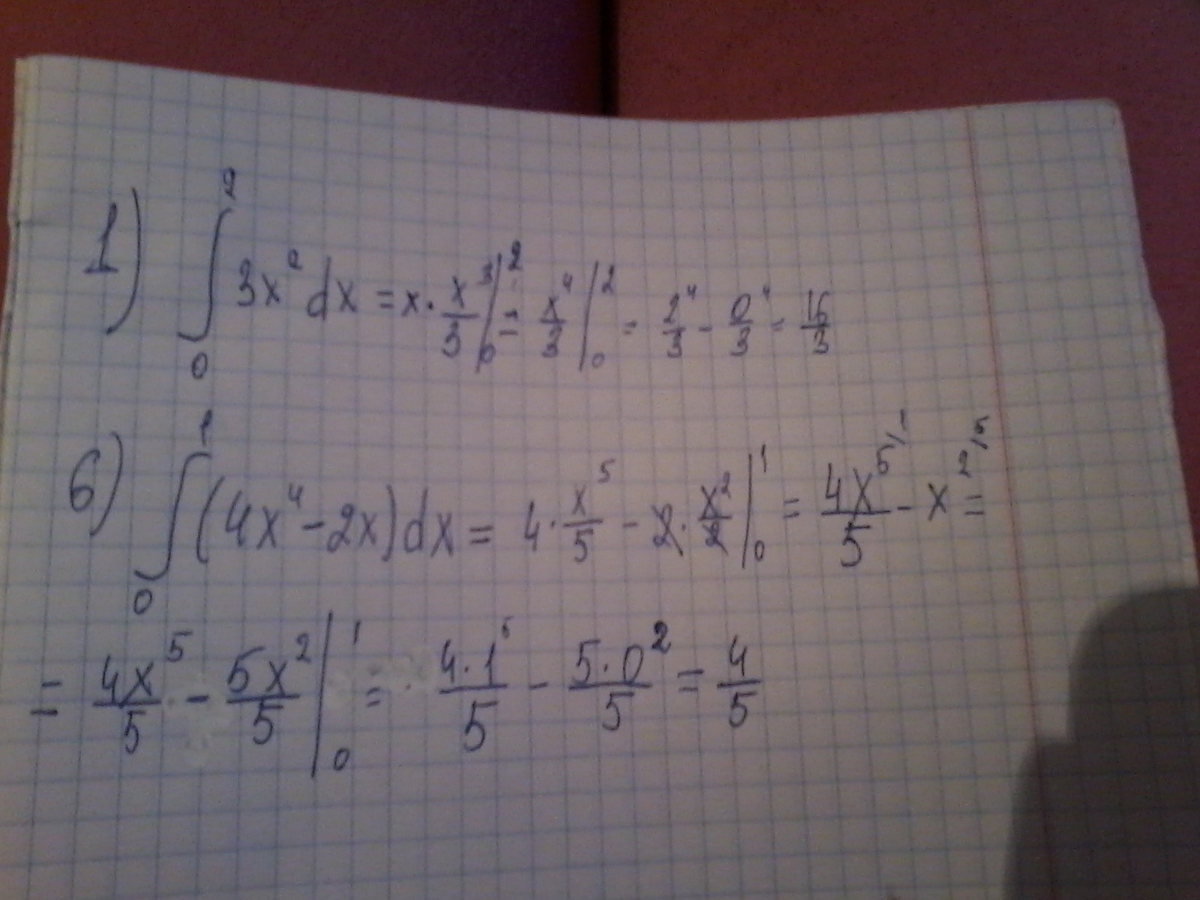 1) ∫₀² 3x² dx = x · x³/3 |₀² = x⁴/3 |₀² = 2⁴/3 - 0⁴/3 = 16/3
6) ∫₀¹ (4x⁴ - 2x) dx = 4 · x⁵/5 - 2 · x²/2 |₀¹ = 4x⁵/5 - x² =
= 4x⁵/5 - 5x²/5 |₀¹ = 4·1⁵/5 - 5·0²/5 = 4/5